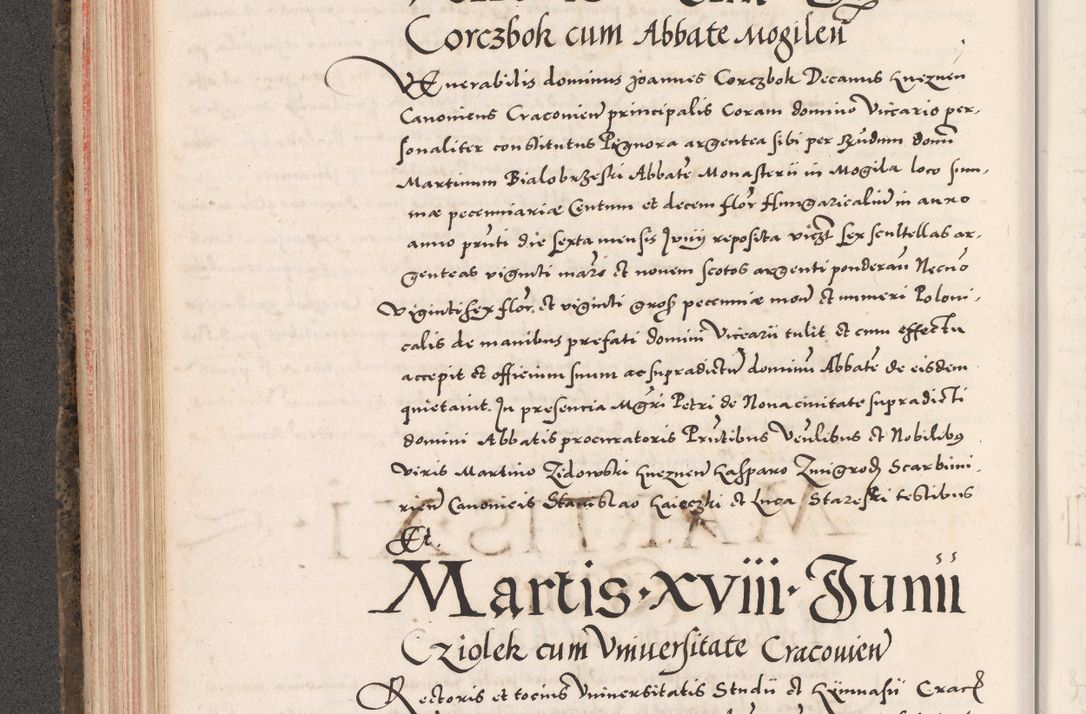 Corczbok cum Abbate Mogilen
Venerabilis dominus Joannes Corczbok Decanus Gneznen
Canonicus Cracovien principalis Coram domino Viccario per-
sonaliter constitutus Pignora argentea sibi per Rndum domi
Martinum Bialobrzeski Abbate Monasterii in Mogila loco sum-
mæ pecunniariæ Centum et decem flor Hungaricaliu in auro
anno prnti die sexta mensis Junii reposita viczt sex scultellas ar-
genteas viginti marc et novem scotos argenti ponderan Necno
vigintisex flor. et viginti gross pecunniæ mon et numeri Poloni-
calis de manibus prefati domini Viccarii tulit et cum effectu
accepit et officium suum ac supradictu dominu Abbate de eisdem
quietavit. In presencia Mgri Petri de Nova civitate supradicti
domini Abbatis procuratoris Prntibus Venlibus et Nobilibus
viris Martino Zidowski Gneznen Casparo Zmigrod Scarbimi-
rien Canonicis Stanislao Gaieczki et Luca Stareski testibus
Et.
Martis · xviii · Junii
Cziolek cum Universitate Cracovien
Rectoris et tocius Universitatis Studii et Gymnasii Crac